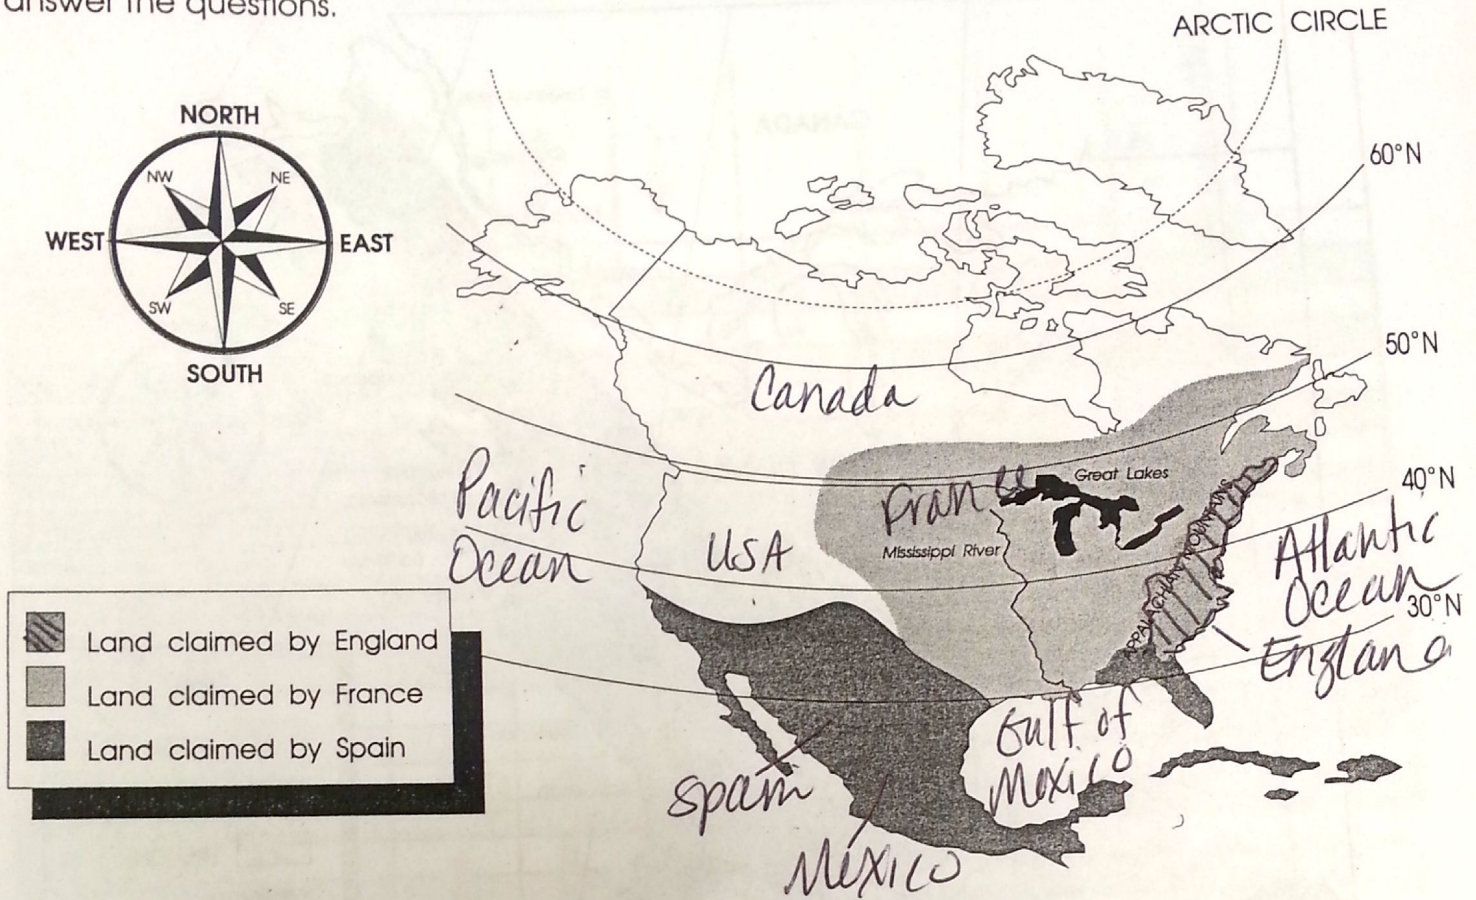 answer the questions.
ARCTIC CIRCLE
NORTH
NW
NE
WEST
EAST
SW
SE
SOUTH
60°N
50°N
40°N
30°N
Canada
Pacific
Ocean
USA
France
Great Lakes
Mississippi River
APPALACHIAN MOUNTAINS
Atlantic
Ocean
England
Gulf of
Mexico
Spain
Mexico
Land claimed by England
Land claimed by France
Land claimed by Spain